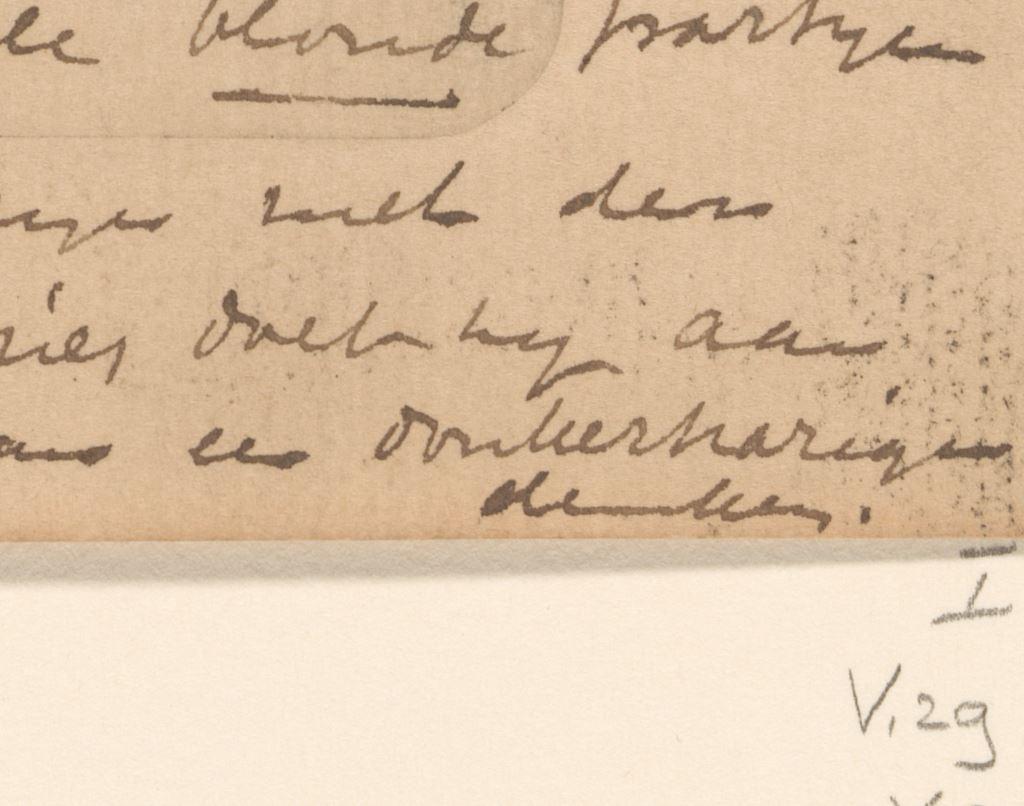 blonde partyen
met den
doet hy aan
een donkerharigen
denken.
I
V, 29